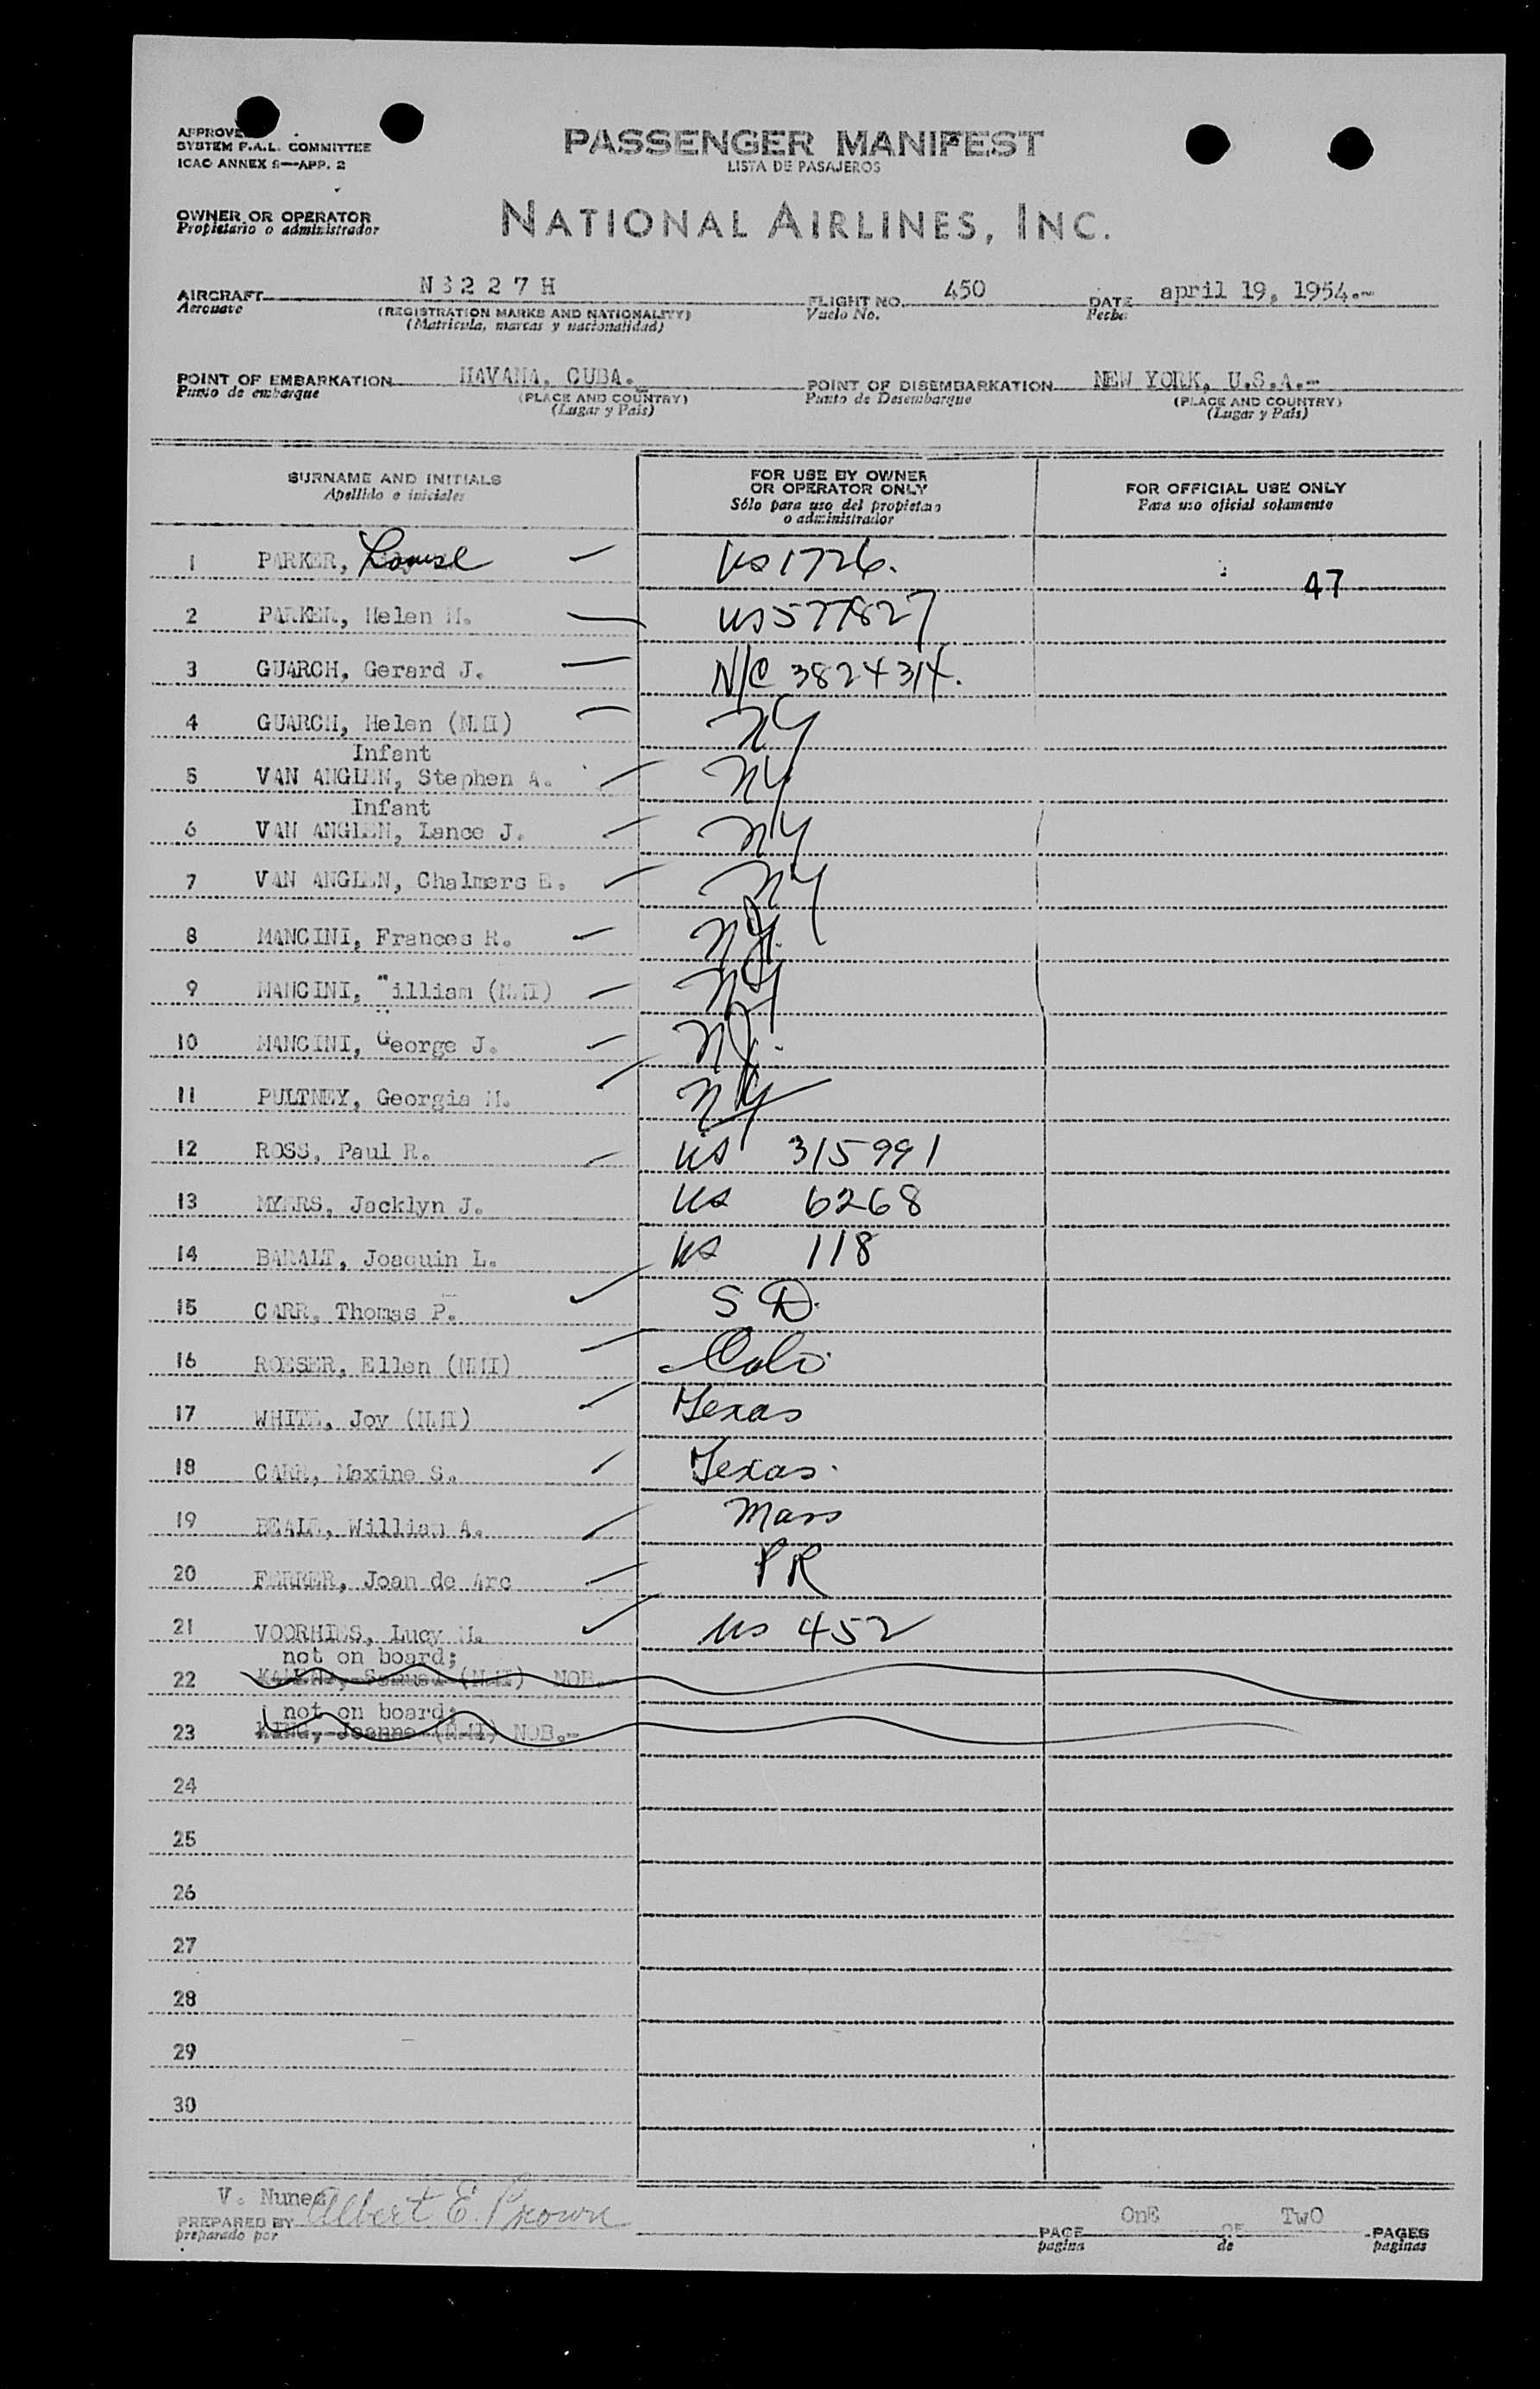 APPROVE
SYSTEM F.A.L. COMMITTEE
ICAO ANNEX 9—APP. 2
PASSENGER MANIFEST
LISTA DE PASAJEROS
OWNER OR OPERATOR
Propietario o administrador
NATIONAL AIRLINES, INC.
AIRCRAFT N8227H FLIGHT NO. 450 DATE april 19, 1954.-
Aeronave (REGISTRATION MARKS AND NATIONALITY) Vuelo No. Fecha
(Matricula, marcas y nacionalidad)
POINT OF EMBARKATION HAVANA, CUBA.- POINT OF DISEMBARKATION NEW YORK, U.S.A.-
Punto de embarque (PLACE AND COUNTRY) Punto de Desembarque (PLACE AND COUNTRY)
(Lugar y País) (Lugar y País)
SURNAME AND INITIALS
Apellido e iniciales
FOR USE BY OWNER
OR OPERATOR ONLY
Sólo para uso del propietario
o administrador
FOR OFFICIAL USE ONLY
Para uso oficial solamente
1 PARKER, Louise — US 1726. 47
2 PARKER, Helen M. — US 577827
3 GUARCH, Gerard J. — N/C 3824314.
4 GUARCH, Helen (NMI) — NY
Infant
5 VAN ANGLEN, Stephen A. NY
Infant
6 VAN ANGLEN, Lance J. NY
7 VAN ANGLEN, Chalmers E. NY
8 MANCINI, Frances R. NJ.
9 MANCINI, William (NMI) NJ
10 MANCINI, George J. NJ.
11 PULTNEY, Georgia M. NY
12 ROSS, Paul R. US 315991
13 MYERS, Jacklyn J. US 6268
14 BARALT, Joaquin L. US 118
15 CARR, Thomas P. S D.
16 ROESER, Ellen (NMI) Colo.
17 WHITE, Joy (NMI) Texas
18 CARR, Maxine S. Texas.
19 BEALE, William A. Mass
20 FERRER, Joan de Arc PR
21 VOORHIES, Lucy M. US 452
not on board;
22 Samuel (NMI) NOB.-
not on board;
23 KING, Joanne (NMI) NOB.-
24
25
26
27
28
29
30
V. Nunez
PREPARED BY Albert E. Brown
preparado por
PAGE OnE OF TwO PAGES
pagina de paginas